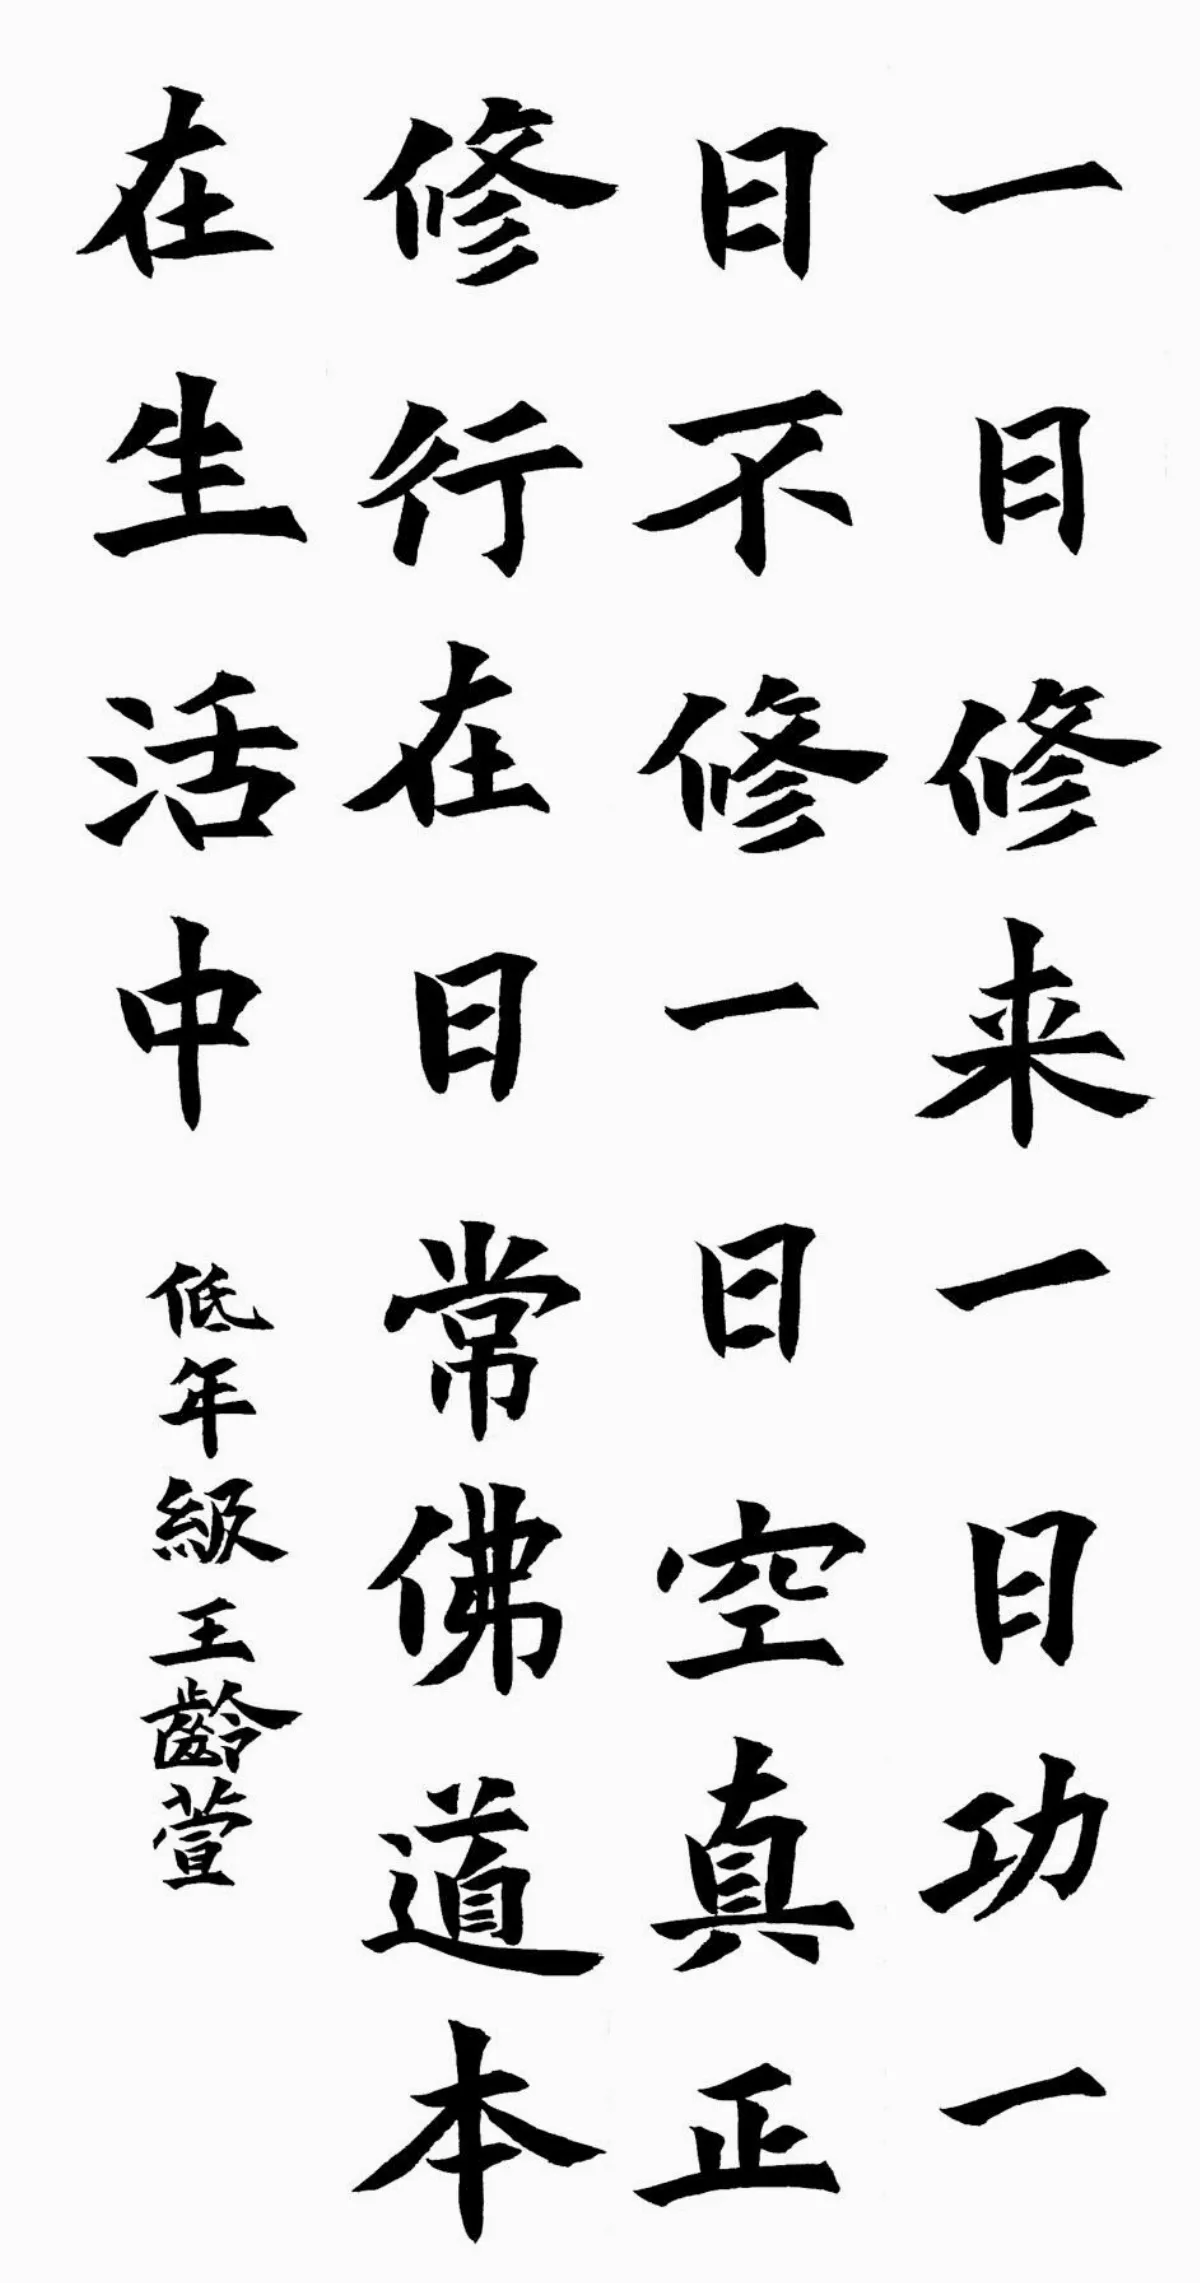 一日修来一日功一
日不修一日空真正
修行在日常佛道本
在生活中
低年級王齡萱